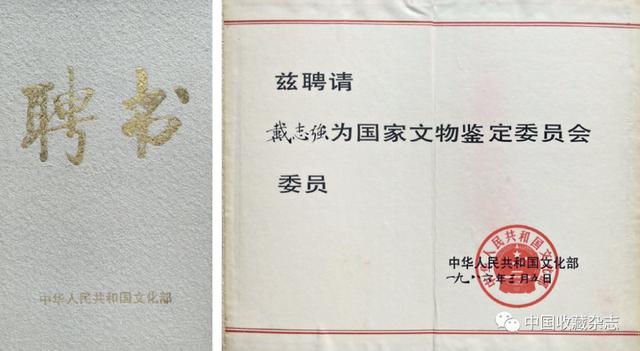 聘书
中华人民共和国文化部
兹聘请
戴志强为国家文物鉴定委员会
委员
中华人民共和国文化部
一九八六年三月五日
中华人民共和国文化部
中国收藏杂志